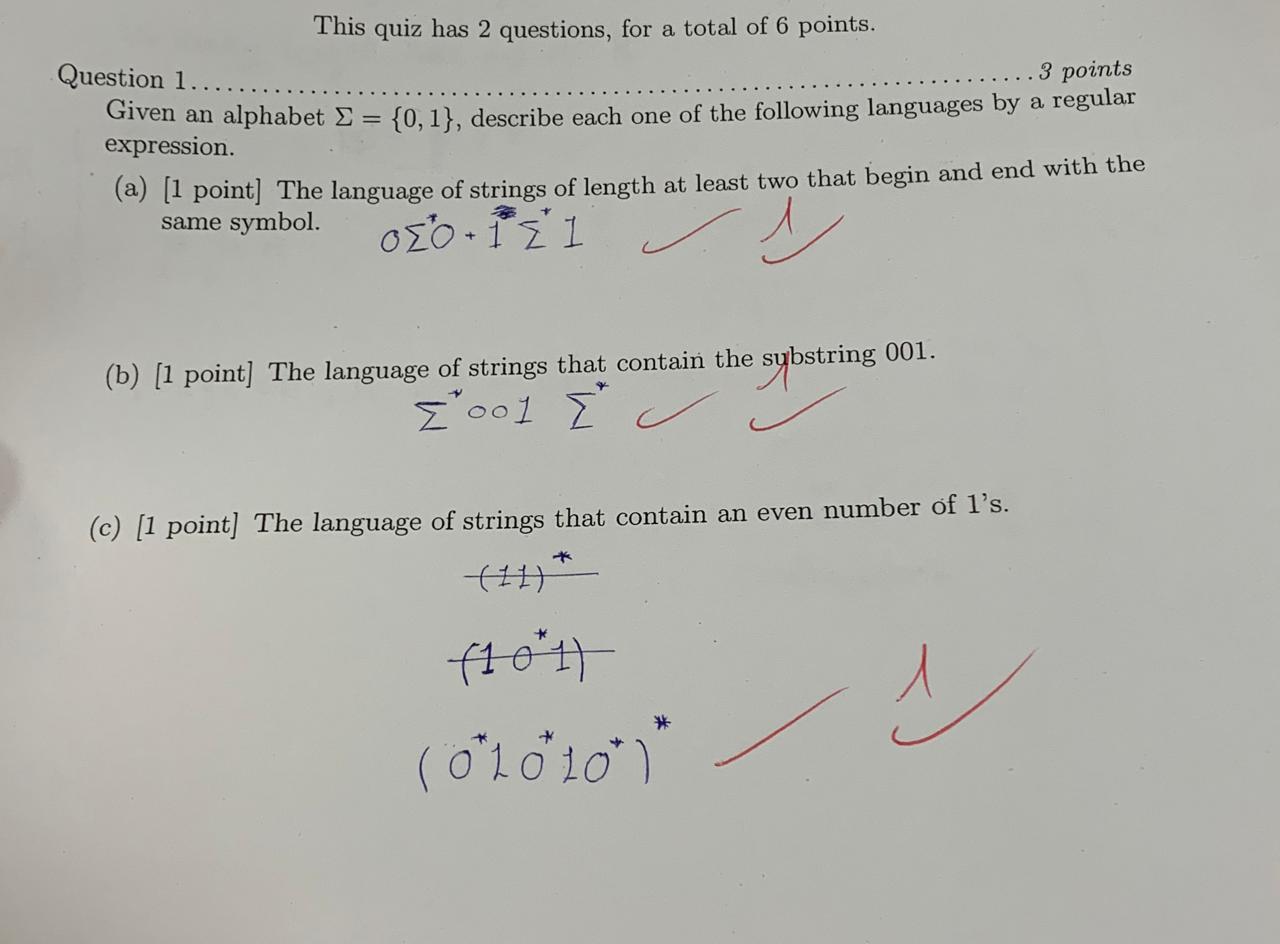 This quiz has 2 questions, for a total of 6 points.
Question 1........................................................................3 points
Given an alphabet Σ = {0, 1}, describe each one of the following languages by a regular
expression.
(a) [1 point] The language of strings of length at least two that begin and end with the
same symbol.
0Σ*0 + 1Σ*1 ✓ 1
(b) [1 point] The language of strings that contain the substring 001.
Σ*001 Σ* ✓ 1
(c) [1 point] The language of strings that contain an even number of 1's.
(11)*
(10*1)
(0*10*10*)* ✓ 1